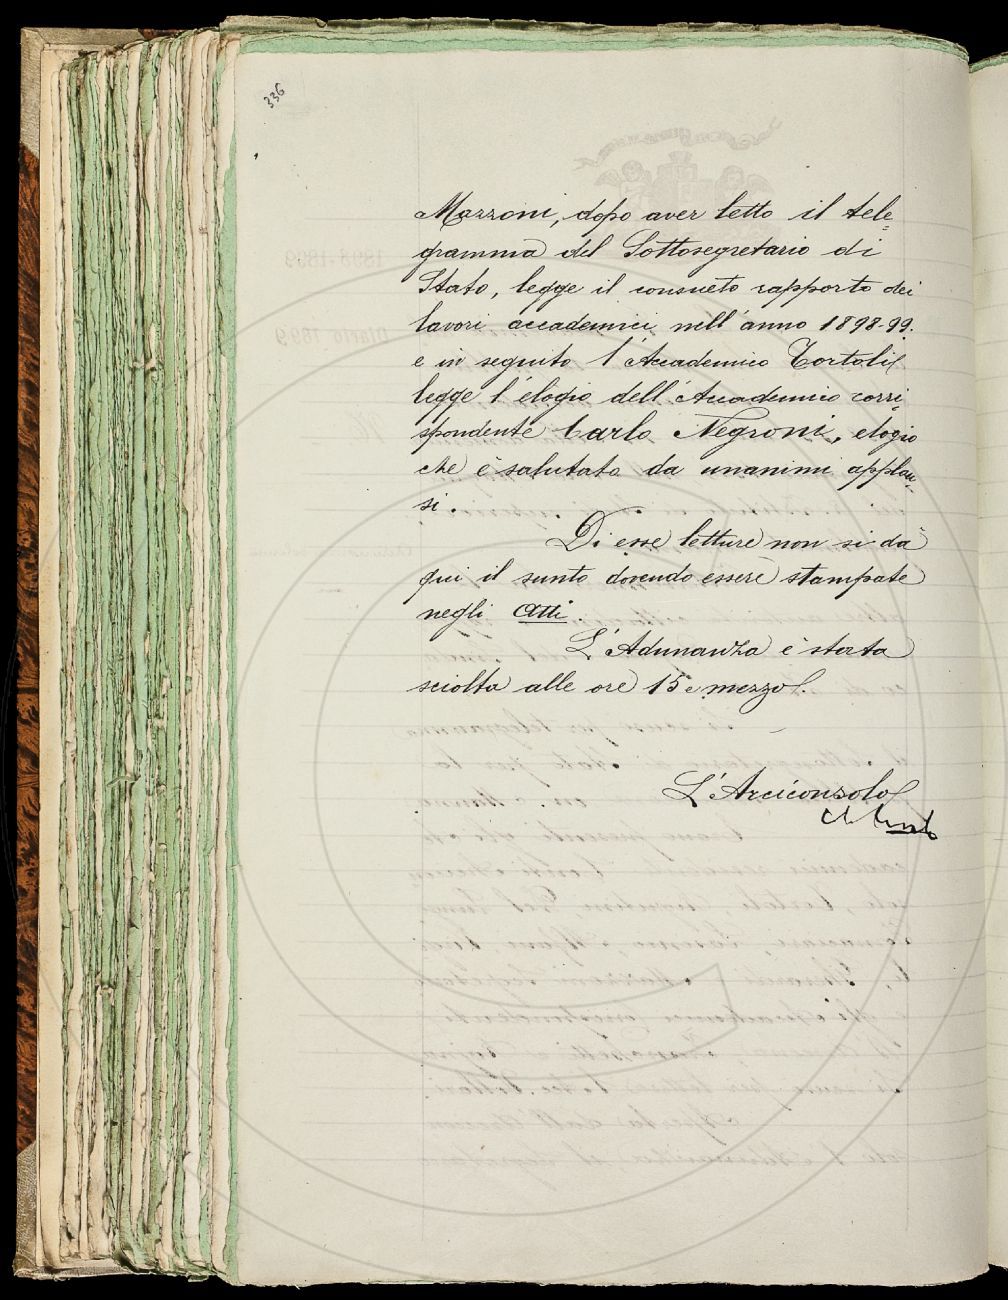 336
Mazzoni, dopo aver letto il tele=
gramma del Sottosegretario di
Stato, legge il consueto rapporto dei
lavori accademici nell'anno 1898-99.
e in seguito l'Accademico Tortoli
legge l'elogio dell'Accademico corri=
spondente Carlo Negroni, elogio
che è salutato da unanimi applau=
si.
Di esse letture non si dà
qui il sunto dovendo essere stampate
negli Atti.
L'Adunanza è stata
sciolta alle ore 15 e mezzo.
L'Arciconsolo